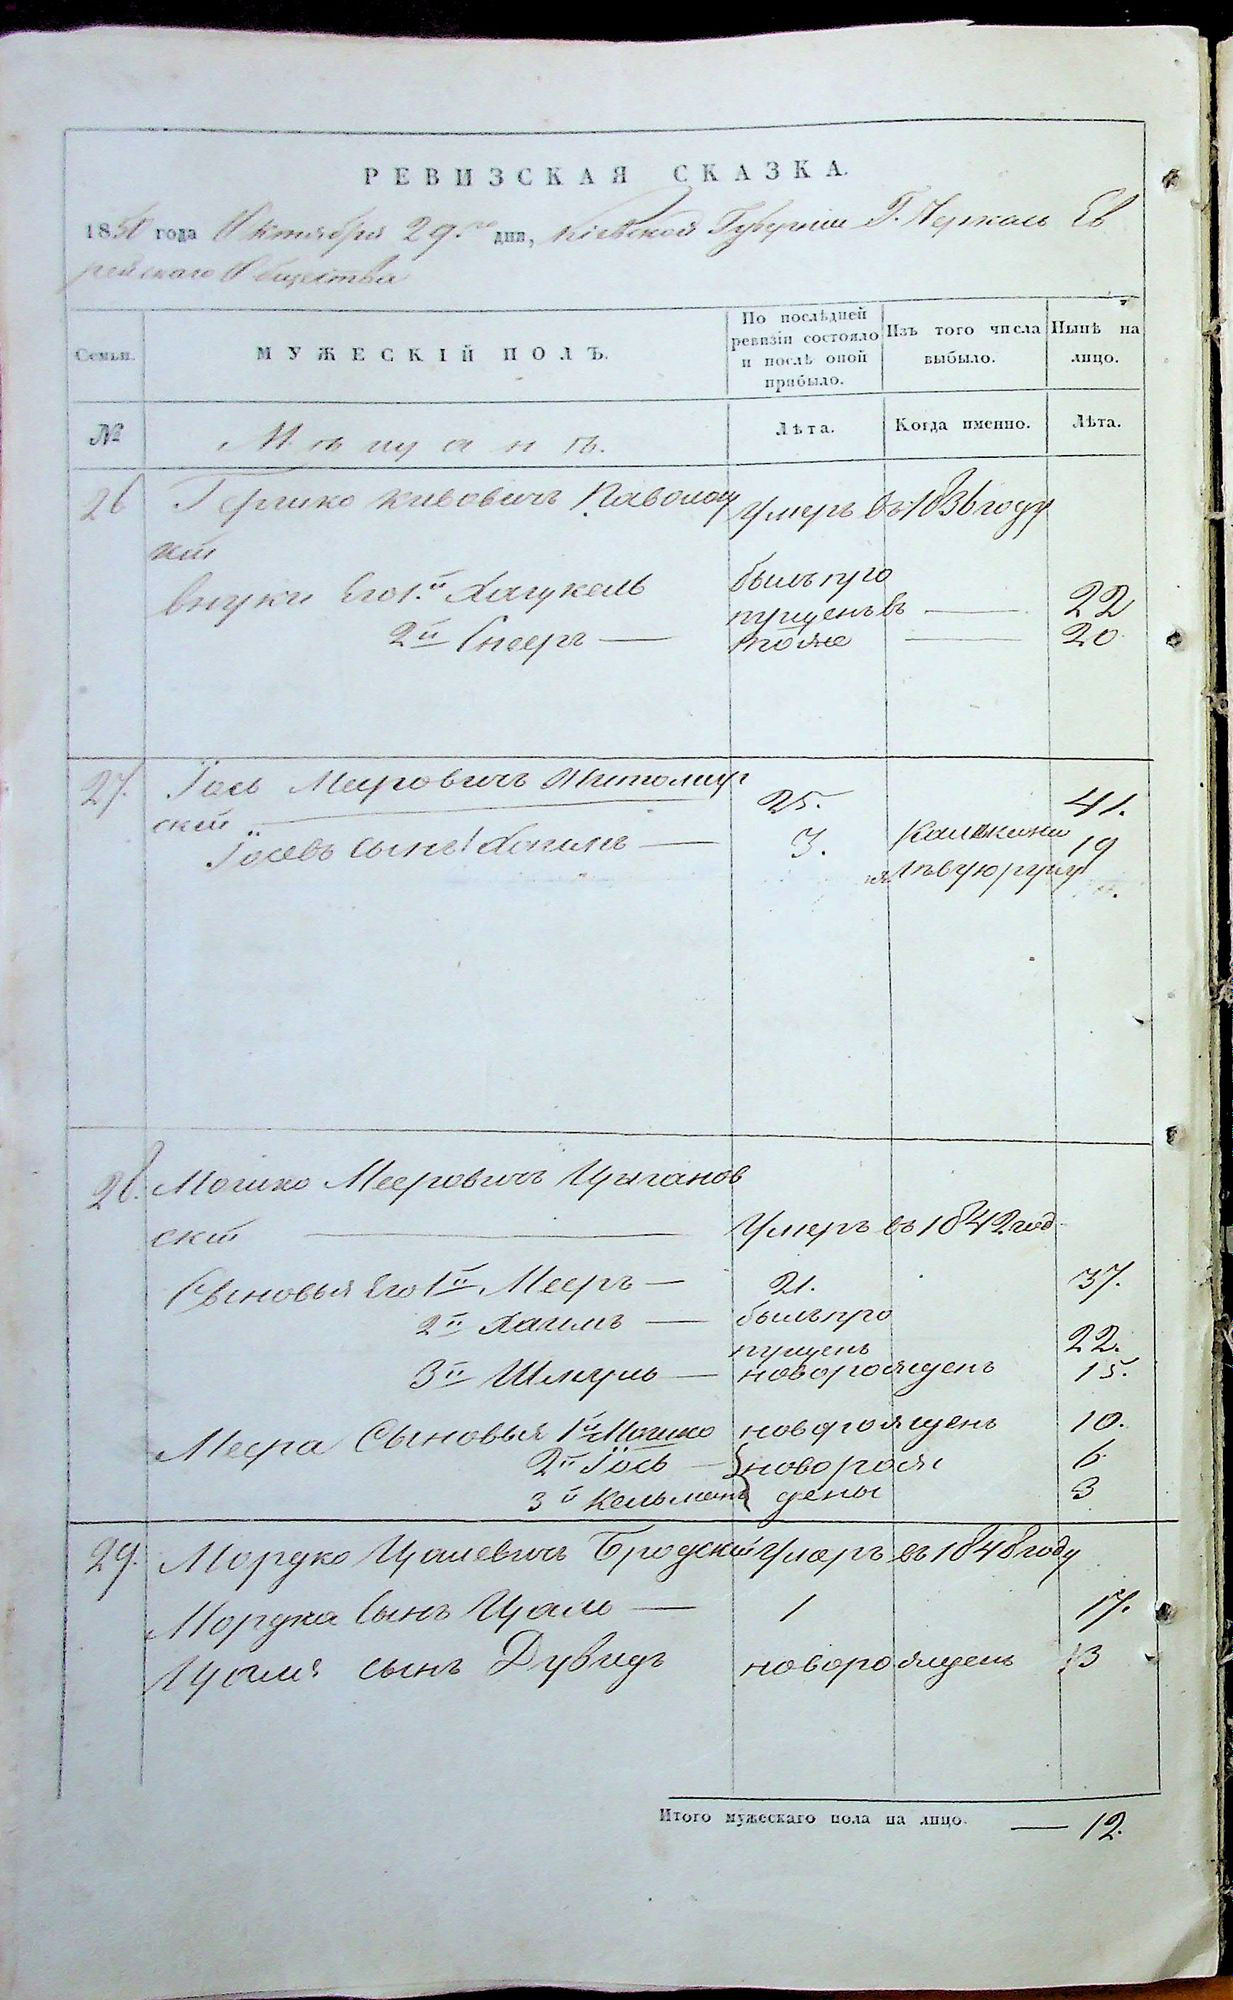 РЕВИЗСКАЯ СКАЗКА.
1850 года Октября 29го дня, Кіевской Губерніи Г. Черкасъ Ев
рейскаго Общества
Семьи.
МУЖЕСКІЙ ПОЛЪ.
По послѣдней ревизіи состояло и послѣ оной прибыло.
Изъ того числа выбыло.
Нынѣ на лицо.
№
Мѣщанъ.
Лѣта.
Когда именно.
Лѣта.
26 Гершко Кивовичъ Паволоц Умеръ въ 1836 году
кій
внуки Его 1й Хацкель былъ про
пущенъ въ — 22
2й Снееръ — тоже — 20
27. Іось Меировичъ Житомир
скій — 25. 41.
Іосевъ сынъ 1 Хаимъ — 3. 19
28. Мошко Мееровичъ Цыганов
скій — Умеръ въ 1842 год
Сыновья Его 1й Мееръ — 21. 37.
2й Хаимъ — былъ про
пущенъ 22.
3й Шмуль — новорожденъ 15.
Меера Сыновья 1й Мошко новорожденъ 10.
2й Іось — новорож 6
3й Кельманъ дены 3
29. Мордко Цалевичъ Бродскій Умеръ въ 1848 году
Мордка Сынъ Цаль — 1 17.
Цаля сынъ Дувидъ новорожденъ 13
Итого мужескаго пола на лицо. — 12.